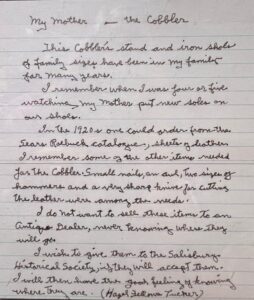 My Mother — the Cobbler
This Cobbler's stand and iron shols
of family sizes have been in my family
for many years.
I remember when I was four or five
watching my Mother put new soles on
our shoes.
In the 1920s one could order from the
Sears Roebuck catalogue, sheets of leathers
I remember some of the other items needed
for the Cobbler. Small nails, an awl, two sizes of
hammers and a very sharp knive for cutting
the leather were among the needs.
I do not want to sell these items to an
Antique Dealer, never knowing where they
will go.
I wish to give them to the Salisbury
Historical Society, if they will accept them.
I will then have the good feeling of knowing
where they are. (Hazel Tucker)